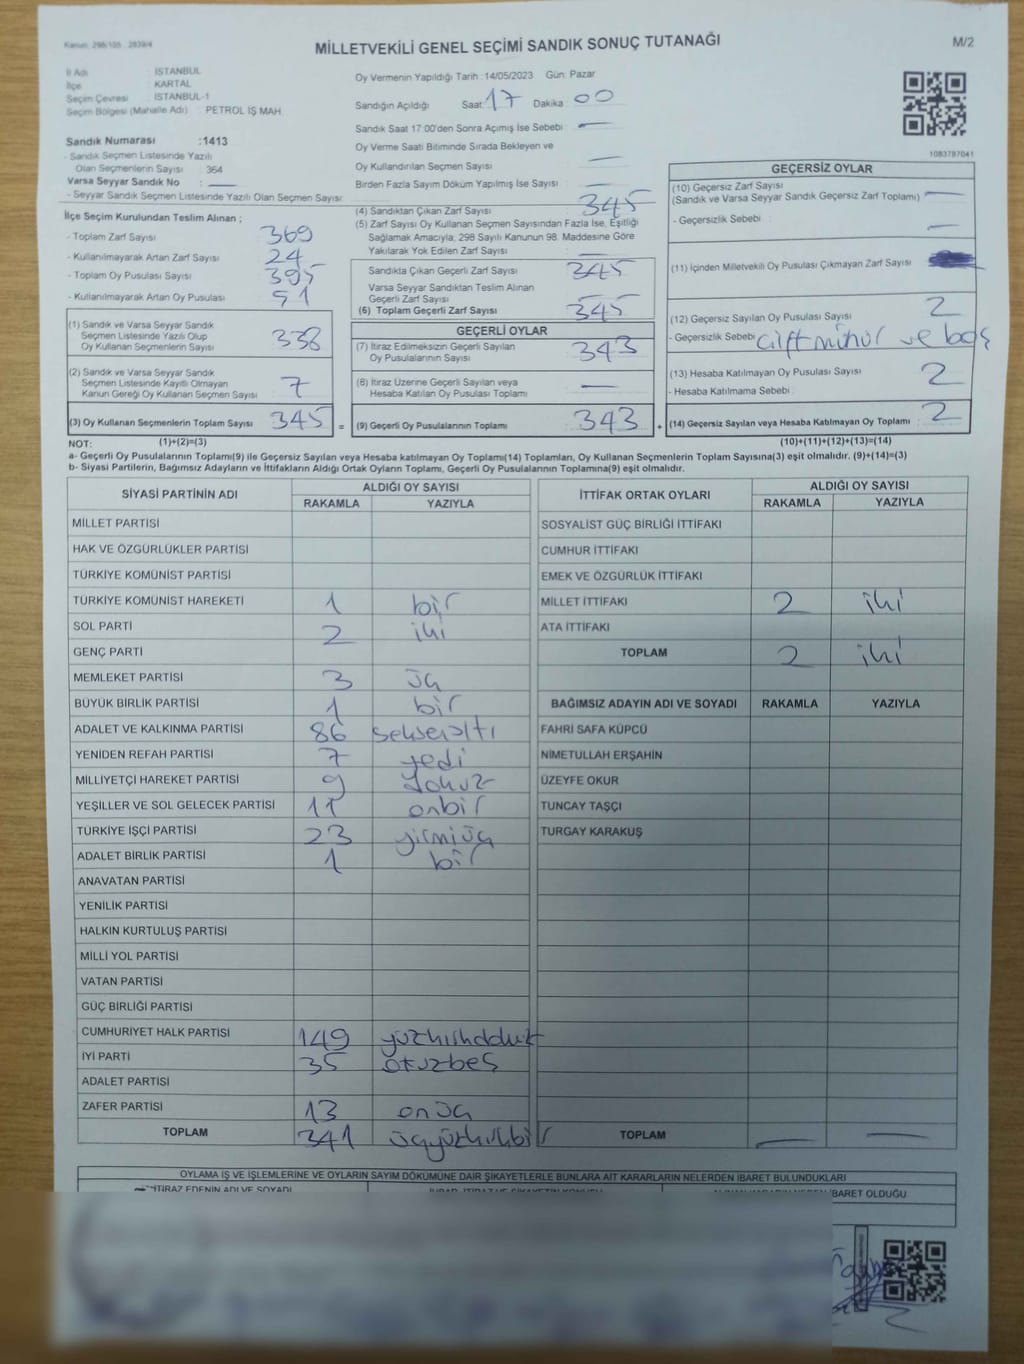 Kanun: 298/105 , 2839/4
MİLLETVEKİLİ GENEL SEÇİMİ SANDIK SONUÇ TUTANAĞI
M/2
İl Adı : İSTANBUL
İlçe : KARTAL
Seçim Çevresi : İSTANBUL-1
Seçim Bölgesi (Mahalle Adı) : PETROL İŞ MAH
Sandık Numarası :1413
- Sandık Seçmen Listesinde Yazılı
Olan Seçmenlerin Sayısı : 364
Varsa Seyyar Sandık No :
- Seyyar Sandık Seçmen Listesinde Yazılı Olan Seçmen Sayısı:
Oy Vermenin Yapıldığı Tarih :14/05/2023 Gün: Pazar
Sandığın Açıldığı Saat: 17 Dakika : 00
Sandık Saat 17:00'den Sonra Açımış İse Sebebi :
Oy Verme Saati Bitiminde Sırada Bekleyen ve
Oy Kullandırılan Seçmen Sayısı
Birden Fazla Sayım Döküm Yapılmış İse Sayısı :
1083797041
İlçe Seçim Kurulundan Teslim Alınan ;
- Toplam Zarf Sayısı : 369
- Kullanılmayarak Artan Zarf Sayısı : 24
- Toplam Oy Pusulası Sayısı : 395
- Kullanılmayarak Artan Oy Pusulası : 51
(1) Sandık ve Varsa Seyyar Sandık
Seçmen Listesinde Yazılı Olup
Oy Kullanan Seçmenlerin Sayısı : 338
(2) Sandık ve Varsa Seyyar Sandık
Seçmen Listesinde Kayıtlı Olmayan
Kanun Gereği Oy Kullanan Seçmen Sayısı : 7
(3) Oy Kullanan Seçmenlerin Toplam Sayısı : 345 =
(4) Sandıktan Çıkan Zarf Sayısı : 345
(5) Zarf Sayısı Oy Kullanan Seçmen Sayısından Fazla İse, Eşitliği
Sağlamak Amacıyla, 298 Sayılı Kanunun 98. Maddesine Göre
Yakılarak Yok Edilen Zarf Sayısı :
Sandıkta Çıkan Geçerli Zarf Sayısı : 345
Varsa Seyyar Sandıktan Teslim Alınan
Geçerli Zarf Sayısı :
(6) Toplam Geçerli Zarf Sayısı : 345
GEÇERLİ OYLAR
(7) İtiraz Edilmeksizin Geçerli Sayılan
Oy Pusulalarının Sayısı : 343
(8) İtiraz Üzerine Geçerli Sayılan veya
Hesaba Katılan Oy Pusulası Toplamı :
(9) Geçerli Oy Pusulalarının Toplamı : 343 +
GEÇERSİZ OYLAR
(10) Geçersiz Zarf Sayısı
(Sandık ve Varsa Seyyar Sandık Geçersiz Zarf Toplamı) :
- Geçersizlik Sebebi :
(11) İçinden Milletvekili Oy Pusulası Çıkmayan Zarf Sayısı :
(12) Geçersiz Sayılan Oy Pusulası Sayısı : 2
- Geçersizlik Sebebi : çift mühür ve boş
(13) Hesaba Katılmayan Oy Pusulası Sayısı : 2
- Hesaba Katılmama Sebebi :
(14) Geçersiz Sayılan veya Hesaba Katılmayan Oy Toplamı : 2
NOT: (1)+(2)=(3) (10)+(11)+(12)+(13)=(14)
a- Geçerli Oy Pusulalarının Toplamı(9) ile Geçersiz Sayılan veya Hesaba katılmayan Oy Toplamı(14) Toplamları, Oy Kullanan Seçmenlerin Toplam Sayısına(3) eşit olmalıdır. (9)+(14)=(3)
b- Siyasi Partilerin, Bağımsız Adayların ve İttifakların Aldığı Ortak Oyların Toplamı, Geçerli Oy Pusulalarının Toplamına(9) eşit olmalıdır.
SİYASİ PARTİNİN ADI ALDIĞI OY SAYISI
RAKAMLA YAZIYLA
MİLLET PARTİSİ
HAK VE ÖZGÜRLÜKLER PARTİSİ
TÜRKİYE KOMÜNİST PARTİSİ
TÜRKİYE KOMÜNİST HAREKETİ 1 bir
SOL PARTİ 2 iki
GENÇ PARTİ
MEMLEKET PARTİSİ 3 üç
BÜYÜK BİRLİK PARTİSİ 1 bir
ADALET VE KALKINMA PARTİSİ 86 seksenaltı
YENİDEN REFAH PARTİSİ 7 yedi
MİLLİYETÇİ HAREKET PARTİSİ 9 dokuz
YEŞİLLER VE SOL GELECEK PARTİSİ 11 onbir
TÜRKİYE İŞÇİ PARTİSİ 23 yirmiüç
ADALET BİRLİK PARTİSİ 1 bir
ANAVATAN PARTİSİ
YENİLİK PARTİSİ
HALKIN KURTULUŞ PARTİSİ
MİLLİ YOL PARTİSİ
VATAN PARTİSİ
GÜÇ BİRLİĞİ PARTİSİ
CUMHURİYET HALK PARTİSİ 149 yüzkırkdokuz
İYİ PARTİ 35 otuzbeş
ADALET PARTİSİ
ZAFER PARTİSİ 13 onüç
TOPLAM 341 üçyüzkırkbir
İTTİFAK ORTAK OYLARI ALDIĞI OY SAYISI
RAKAMLA YAZIYLA
SOSYALİST GÜÇ BİRLİĞİ İTTİFAKI
CUMHUR İTTİFAKI
EMEK VE ÖZGÜRLÜK İTTİFAKI
MİLLET İTTİFAKI 2 iki
ATA İTTİFAKI
TOPLAM 2 iki
BAĞIMSIZ ADAYIN ADI VE SOYADI RAKAMLA YAZIYLA
FAHRİ SAFA KÜPCÜ
NİMETULLAH ERŞAHİN
ÜZEYFE OKUR
TUNCAY TAŞÇI
TURGAY KARAKUŞ
TOPLAM
OYLAMA İŞ VE İŞLEMLERİNE VE OYLARIN SAYIM DÖKÜMÜNE DAİR ŞİKAYETLERLE BUNLARA AİT KARARLARIN NELERDEN İBARET BULUNDUKLARI
İTİRAZ EDENİN ADI VE SOYADI
İBARET OLDUĞU